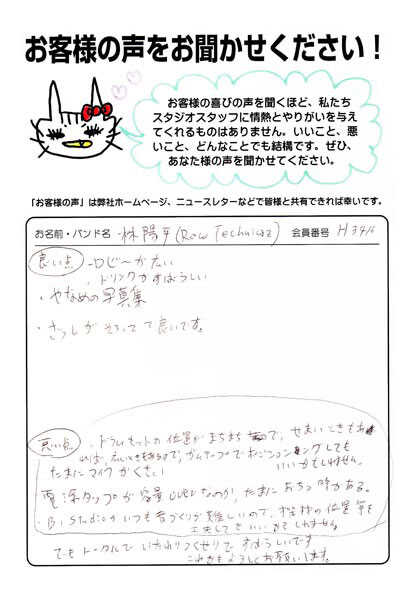 お客様の声をお聞かせください！
お客様の喜びの声を聞くほど、私たち
スタジオスタッフに情熱とやりがいを与え
てくれるものはありません。いいこと、悪
いこと、どんなことでも結構です。ぜひ、
あなた様の声を聞かせてください。
「お客様の声」は弊社ホームページ、ニュースレターなどで皆様と共有できれば幸いです。
お名前・バンド名 林 陽平 (Row Techniqz) 会員番号 H3416
良い点 ・ロビーが広い
・ドリンクがすばらしい
・やなめの写真集
・ざっしがそろってて良いです。
悪い点 ・ドラムセットの位置がまちまちなので、せまいときもあ
れば、広いときもあるので、ガムテップでポジションキングしても
いいかもしれません。
たまにマイクがくさい
電源タップが容量 なのか、たまにおちる時がある。
・B1 studioがいつも音づくりが難しいので、 材の位置等を
工夫してもいいかもしれません
でもトータルで いたれりつくせりで すばらしいです
これからもよろしくお願いします。